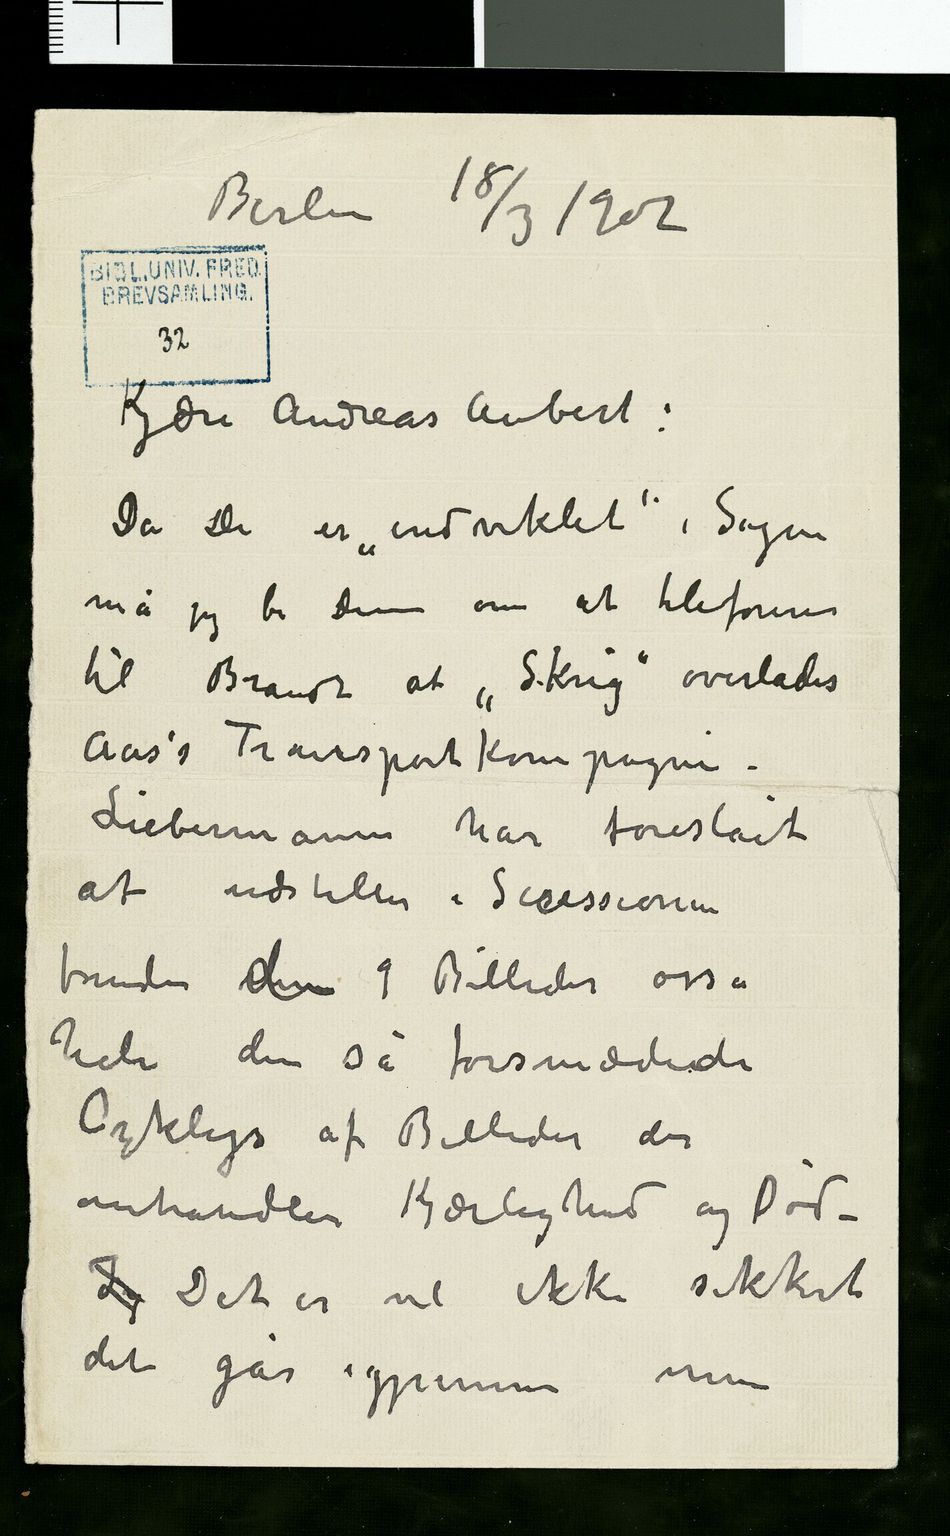 Berlin 18/3 1902
BIBL. UNIV. FRED.
BREVSAMLING.
32
Kjære Andreas Aubert:
Da De er „indviklet“ i Sagen
må jeg be Dem om at telefonere
til Brandt at „Skrig“ overlades
Aas's Transportkompagni -
Liebermann har foreslåt
at udstille i Secessionen
foruden den 9 Billeder osså
hele den så forsmædede
Cyklys af Billeder der
omhandler Kjærlighed og Død -
Jeg Det er vel ikke sikkert
det går igjennem men